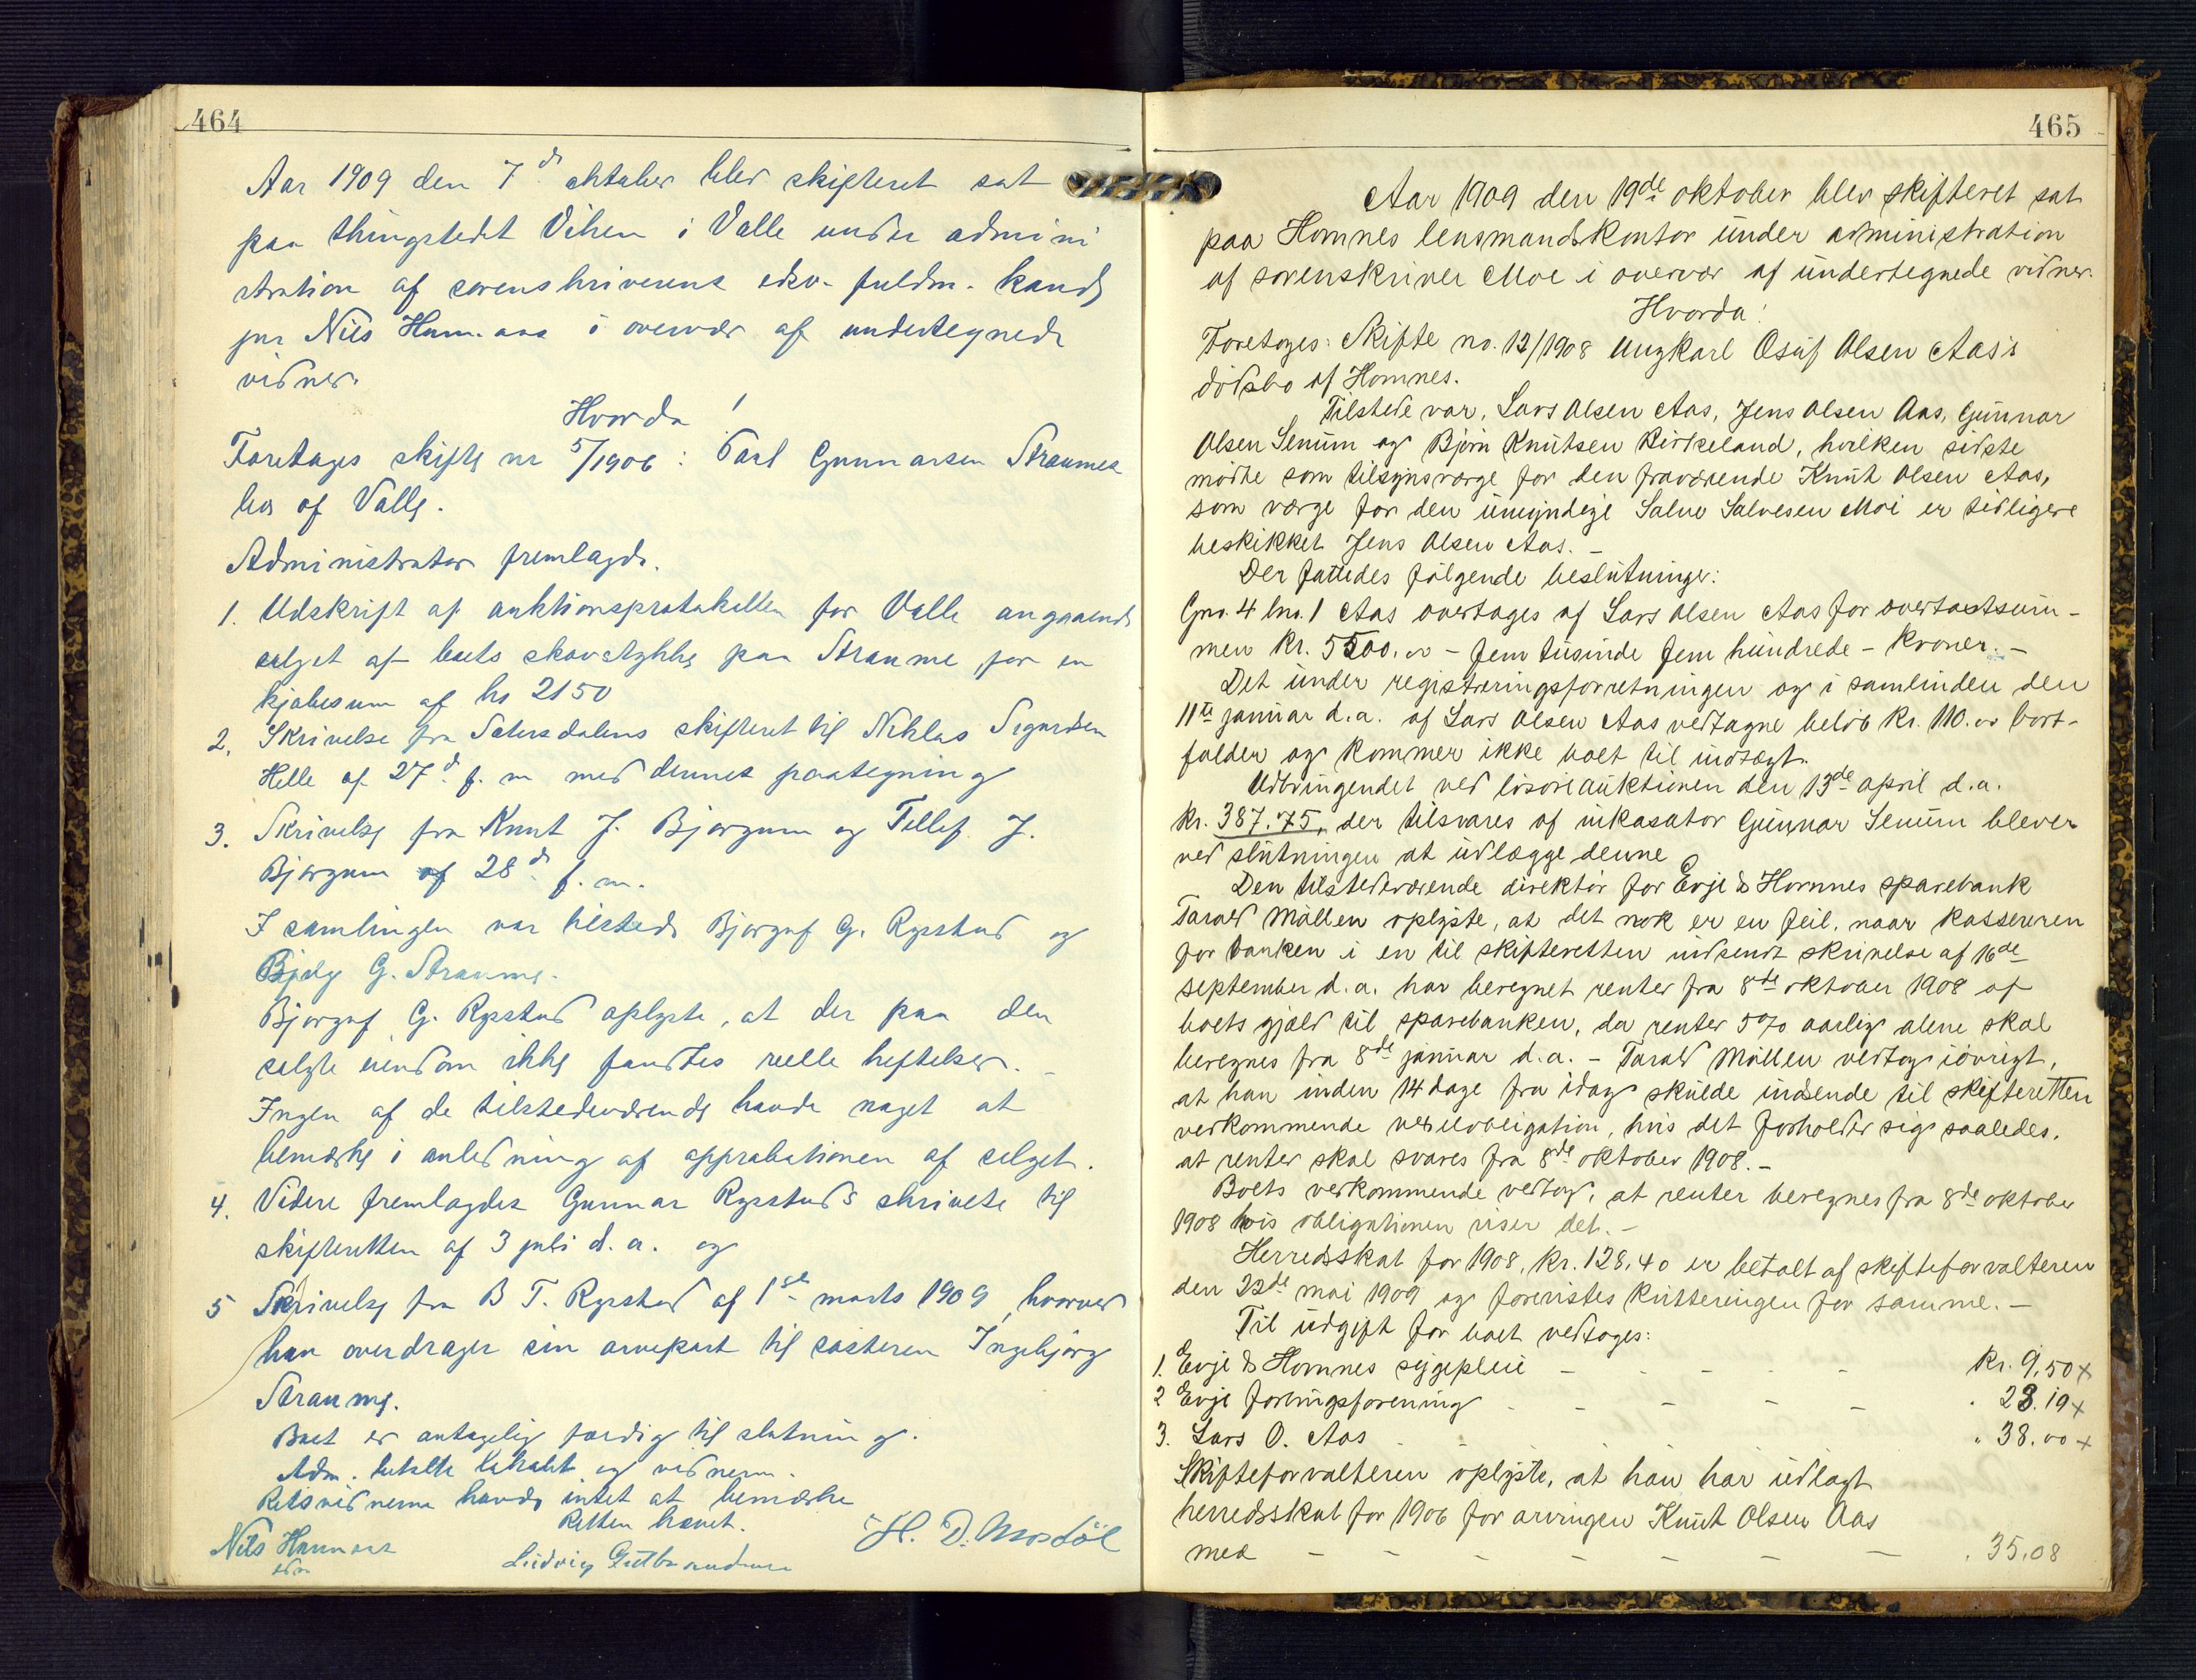 464
Aar 1909 den 7d. oktober blev skifteret sat
paa thingstedet Viken i Valle under admini
stration af sorenskriverens edsv. fuldm. kand
jur Nils Hannaas i overvær af undertegnede
vidner.
Hvorda!
Foretages skifte nr 5/1906: Paal Gunnarsen Straumes
bo af Valle.
Administrator fremlagde.
1. Udskrift af auktionsprotokollen for Valle angaaende
salget af boets skovstykke paa Straume for en
kjøbesum af kr 2150
2. Skrivelse fra Sætersdalens skifteret til Niklas Sigurdsen
Helle af 27d. f. m med dennes paategning
3. Skrivelse fra Knut J. Bjørgum og Tellef J.
Bjørgum af 28d. f. m.
I samlingen var tilstede Bjørguf G. Rysstad og
G. Straume.
Bjørguf G. Rysstad oplyste, at der paa den
solgte eiendom ikke fandtes reelle heftelser. –
Ingen af de tilstedeværende havde noget at
bemærke i anledning af approbationen af salget.
4. Videre fremlagdes Gunnar Rysstads skrivelse til
skifteretten af 3 juli d. a. og
5 Skrivelse fra B T. Rysstad af 1ste marts 1909, hvorved
han overdrager sin arvepart til søsteren Ingebjørg
Straume.
Boet er antagelig færdig til slutning.
Adm. betalte lokalet og vidnerne.
Retsvidnerne havde intet at bemærke
Retten hævet.
Nils Hannaas
edsv
Ludvig Gulbrandsen
H. D. Mosdøl
465
Aar 1909 den 19de oktober blev skifteret sat
paa Hornnes lensmandskontor under administration
af sorenskriver Moe i overvær af undertegnede vidner.
Hvorda!
Foretoges: Skifte no. 12/1908 Ungkarl Osuf Olsen Aas's
dødsbo af Hornnes.
Tilstede var, Lars Olsen Aas, Jens Olsen Aas, Gunnar
Olsen Senum og Bjørn Knutsen Kirkeland, hvilken sidste
mødte som tilsynsværge for den fraværende Knut Olsen Aas,
som værge for den umyndige Salve Salvesen Moi er tidligere
beskikket Jens Olsen Aas. –
Der fattedes følgende beslutninger:
Gno. 4 bno. 1 Aas overtages af Lars Olsen Aas for overtastsum-
men kr. 5500.00 – fem tusinde fem hundrede – kroner. –
Det under registreringsforretningen og i samlinden den
11te januar d.a. af Lars Olsen Aas vedtagne beløb kr. 110.00 bort-
falder og kommer ikke boet til indtægt.
Udbringendet ved løsøreauktionen den 13de april d.a.
kr. 387.75, der tilsvares af inkasator Gunnar Senum blever
ved slutningen at udlægge denne
Den tilstedeværende direktør for Evje & Hornnes sparebank
Tarald Møllen oplyste, at det nok er en feil, naar kassereren
for banken i en til skifteretten indsendt skrivelse af 16de
september d.a. har beregnet renter fra 8de oktober 1908 af
boets gjæld til sparebanken, da renter 5% aarlig alene skal
beregnes fra 8de januar d.a. – Tarald Møllen vedtog iøvrigt,
at han inden 14 dage fra idag skulde indsende til skifteretten
vedkommende vexelobligation, hvis det forholder sig saaledes,
at renter skal svares fra 8de oktober 1908. –
Boets vedkommende vedtog, at renter beregnes fra 8de oktober
1908 hvis obligationen viser det. –
Herredsskat for 1908, kr. 128,40 er betalt af skifteforvalteren
den 22de mai 1909 og forevistes kvitteringen for samme. –
Til udgift for boet vedtoges:
1. Evje & Hornnes sygepleie – – – – – kr. 9,50 x
2 Evje forbrugsforening – – – – – " 28.19 x
3. Lars O. Aas – – " 38.00 x
Skifteforvalteren oplyste, at han har udlagt
herredsskat for 1906 for arvingen Knut Olsen Aas
med – – – – – – – " 35.08